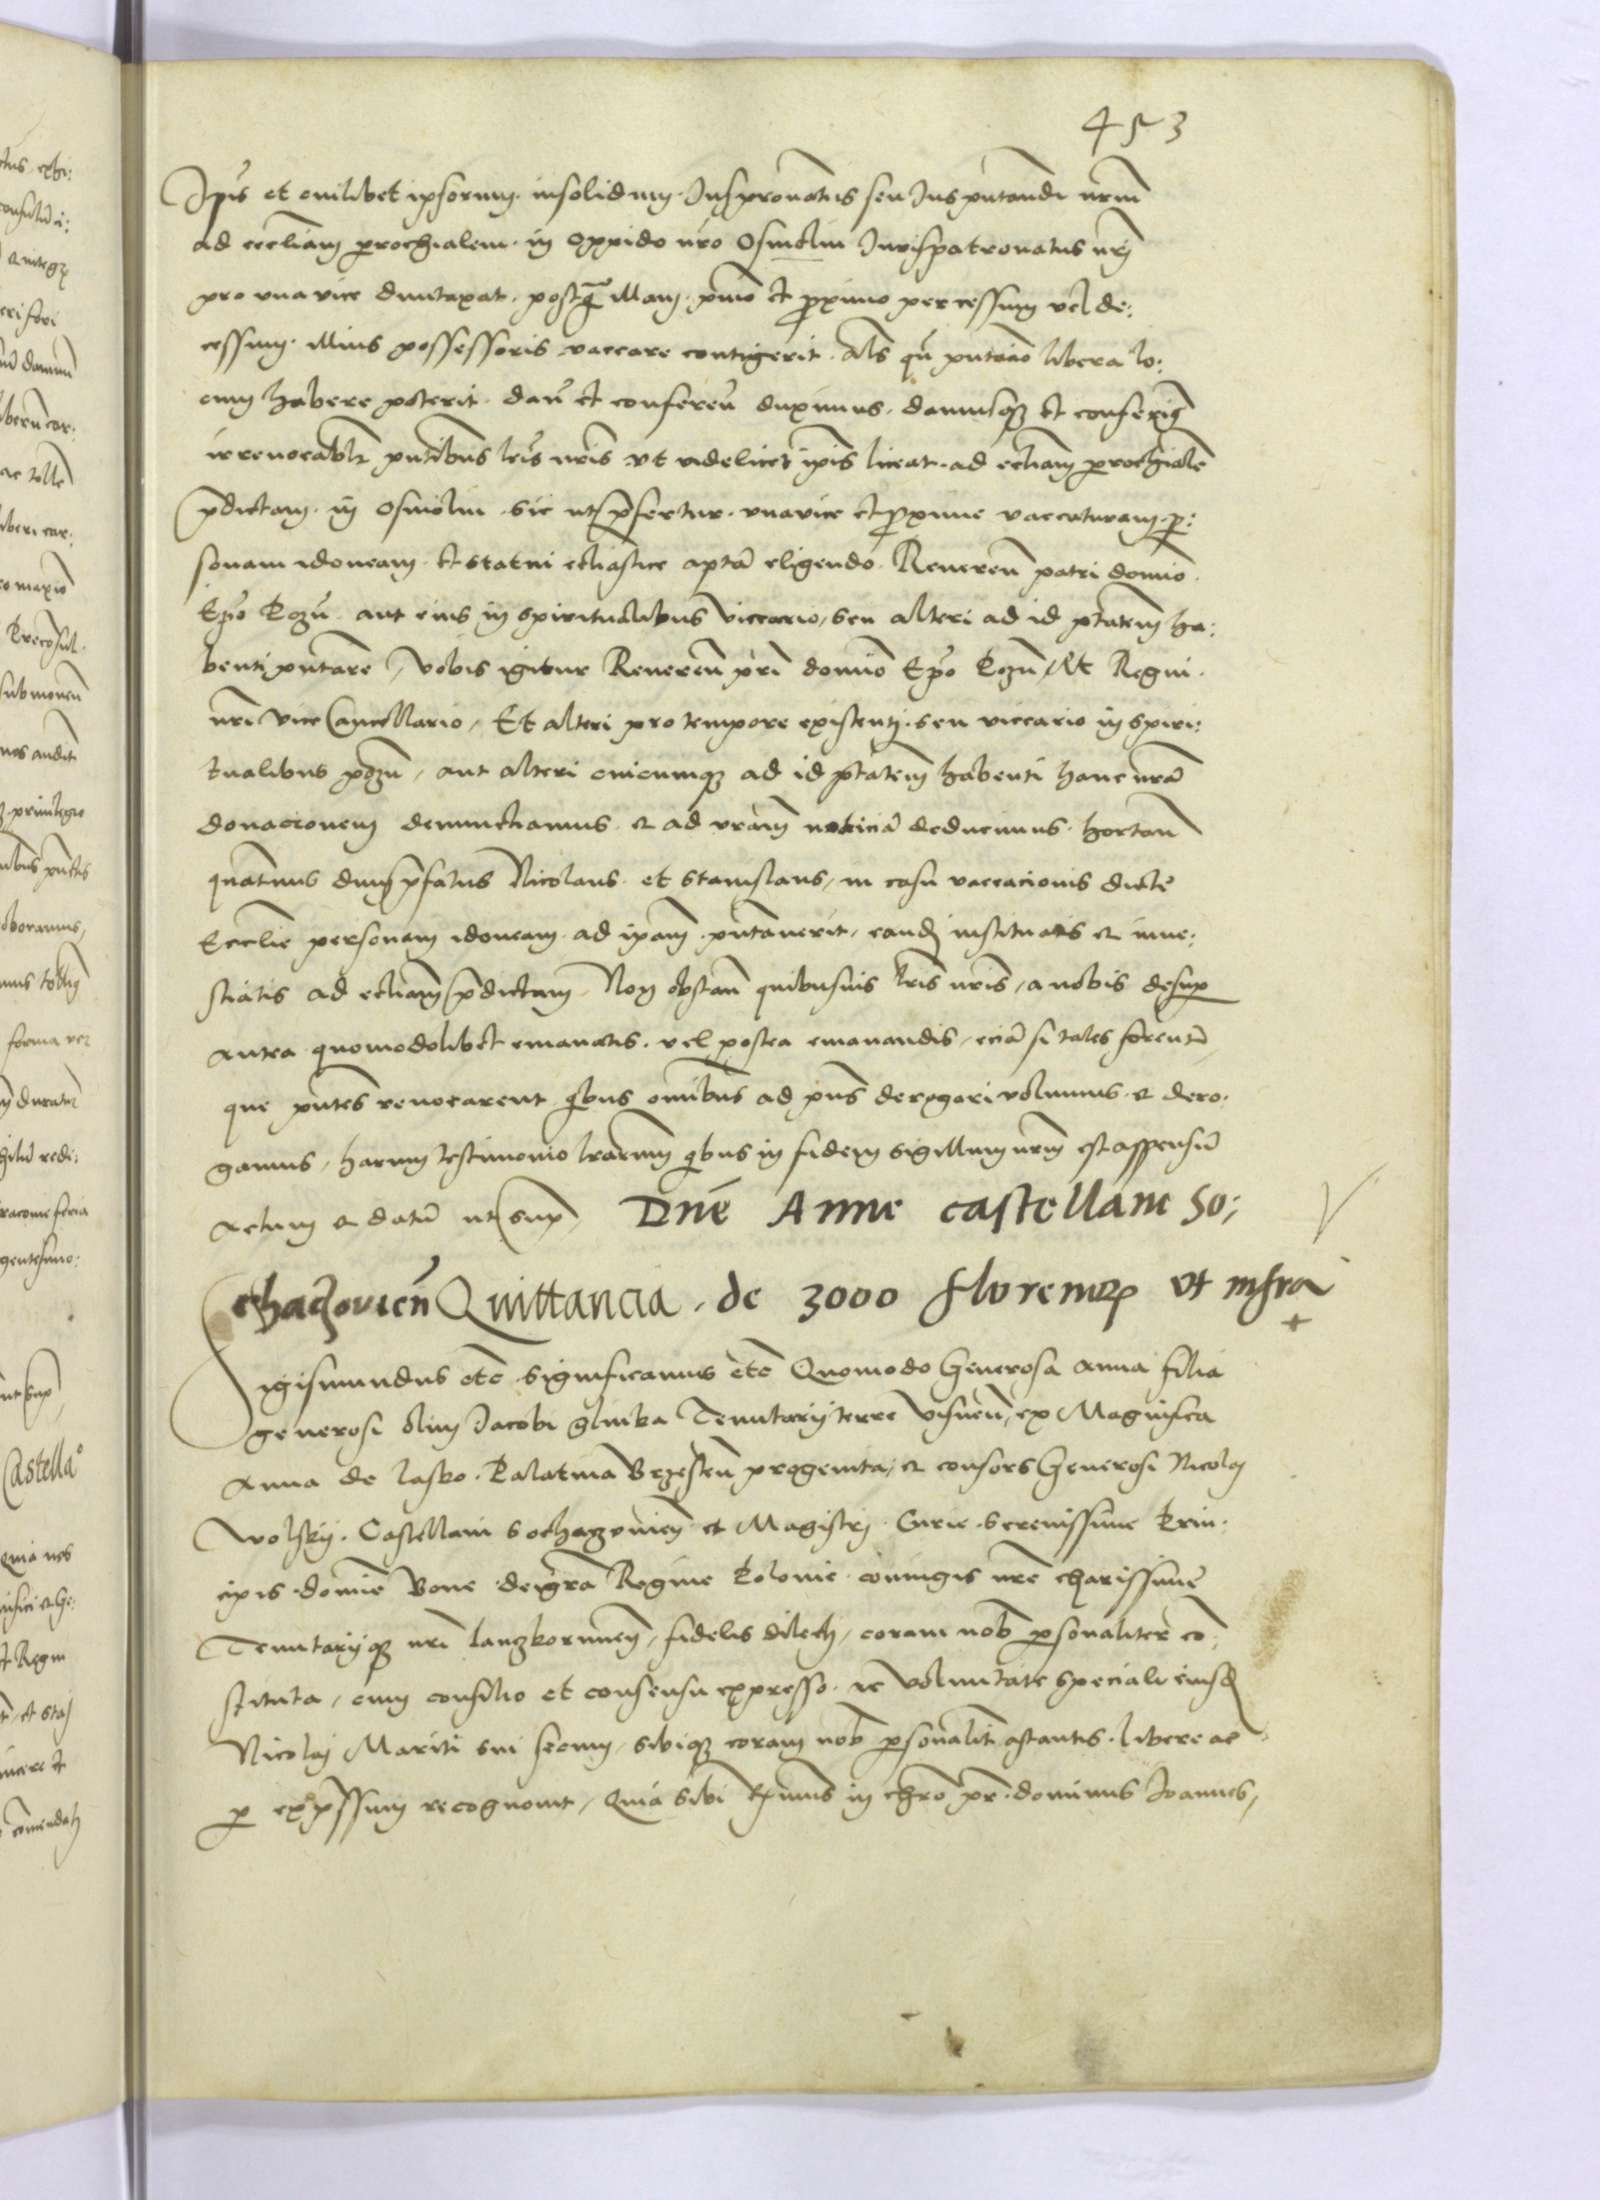 453
Ip̄is et cuilibet ipsorum insolidum Juspr̄onatus seu Jus pn̄tandi nr̄m
ad ecclesiam parochialem in oppido nr̄o Osmolin Jurispatronatus nrj
pro vna vice duntaxat postq̄ illam pr̄imo et proximo per cessum vel de:
cessum illius possessoris vaccare contigerit Als qn̄ pn̄tacio libera lo:
cum habere poterit dan̄ et conferen̄ duximus damusq3 et conferim9
irrevocabl̄r pn̄tibus lr̄is nr̄is vt videlicet ip̄is liceat ad ecl̄iam parochialē
p̄dictam in Osmolin sic ut p̄fertur vnavice et proxime vaccaturam p:
sonam idoneam et statui ecl̄iastice aptā eligendo Reveren̄ patri domīo
Ep̄o Pozn̄ aut eius in spiritualibus viccario, seu alteri ad id pt̄atem ha:
benti pn̄tare, Vobis igitur Reveren̄ pr̄i domīo Ep̄o Pozn̄ Et Regni
nr̄i vice Cancellario, Et alteri pro tempore existenti seu viccario in spiri:
tualibus pozn̄, aut alteri cuicumq3 ad id pt̄atem habenti hanc nr̄ā
donacionem denunctiamus et ad vr̄am noticiā deducimus hortan̄
quatinus dum p̄fatus Nicolaus et Stanislaus, in casu vaccacionis dicte
Ecclie personam idoneam ad ip̄am pn̄tauerit, eandē instituatis et inue:
stiatis ad ecl̄iam p̄dictam, Non obstan̄ quibusuis lr̄is nr̄is, a nobis desup
antea quomodolibet emanatis vel postea emanandis, eciā si tales forent
que pn̄tes revocarent q̄bus om̄ibus ad pn̄s derogari volumus et dero:
gamus, harum testimonio lr̄arum q̄bus in fidem sigillum nr̄m est appensū
Actum et datū ut sup̄, Dn̄e Anne castellane So;
chaczovien̄ Quittancia de 3000 florenor̄ vt infra
Sigismundus etc̄ significamus etc̄ Quomodo Generosa Anna filia
generosi olim Jacobi glinka Tenutarij terre Visnen̄, ex Magnifica
Anna de Lasko Palatina Brzesten̄ progenita, et consors Generosi Nicolaj
Wolskij Castellani Sochaczovien̄ et Magistrj Curie Serenissime Prin:
cipis domīe Bone dei gr̄a Regine Polonie coniugis nr̄e charissime
Tenutarijq3 nr̄i Lanczkorunen̄, fidelis dilecti, coram nob̄ personaliter co:
stituta, cum consilio et consensu expresso ac voluntate speciali eiusd̄
Nicolaj Mariti sui secum, sibiq3 coram nob̄ personalit̄ astantis libere ac
p exp̄ssum recognouit, Quia sibi in chr̄o pr̄ dominus Joannes,